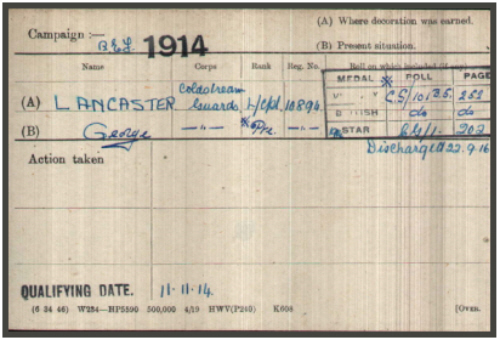 (A) Where decoration was earned.
Campaign :— B.E.F. 1914
(B) Present situation.
Name Corps Rank Reg. No. Roll on which included (if any)
MEDAL * ROLL PAGE
(A) LANCASTER Coldstream Guards. L/Cpl. 10894. C.G/101 B5. 253
(B) George —"— * Pte. —"— BRITISH do do
STAR C.G/1. 202
Discharged 22.9.16
Action taken
QUALIFYING DATE. 11.11.14.
(6 34 46) W234—HP5590 500,000 4/19 HWV(P240) K608 [OVER.